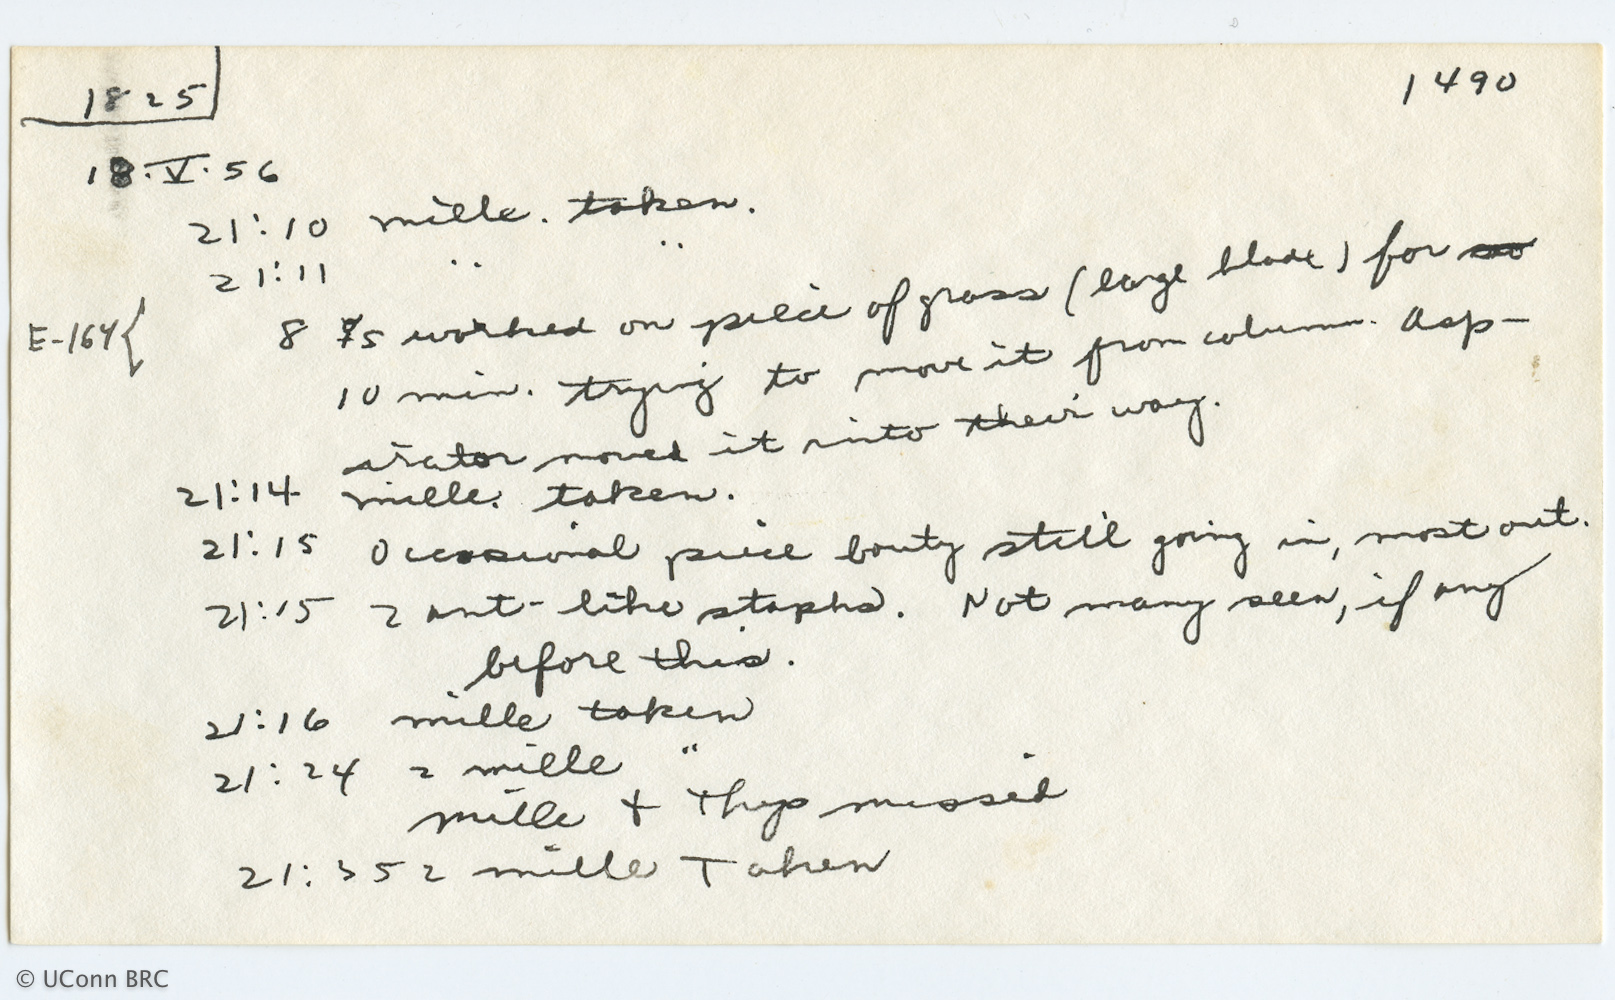 1825
1490
18.V.56
21:10 mille. taken.
21:11 " "
E-164{ 8 ☿s worked on piece of grass (large blade) for
10 min. trying to move it from column. Asp-
irator moved it into their way.
21:14 mille. taken.
21:15 Occasional piece booty still going in, most out.
21:15 2 ant-like staphs. Not many seen, if any
before this.
21:16 mille taken
21:24 2 mille "
mille + Thys missed
21:35 2 mille Taken
© UConn BRC